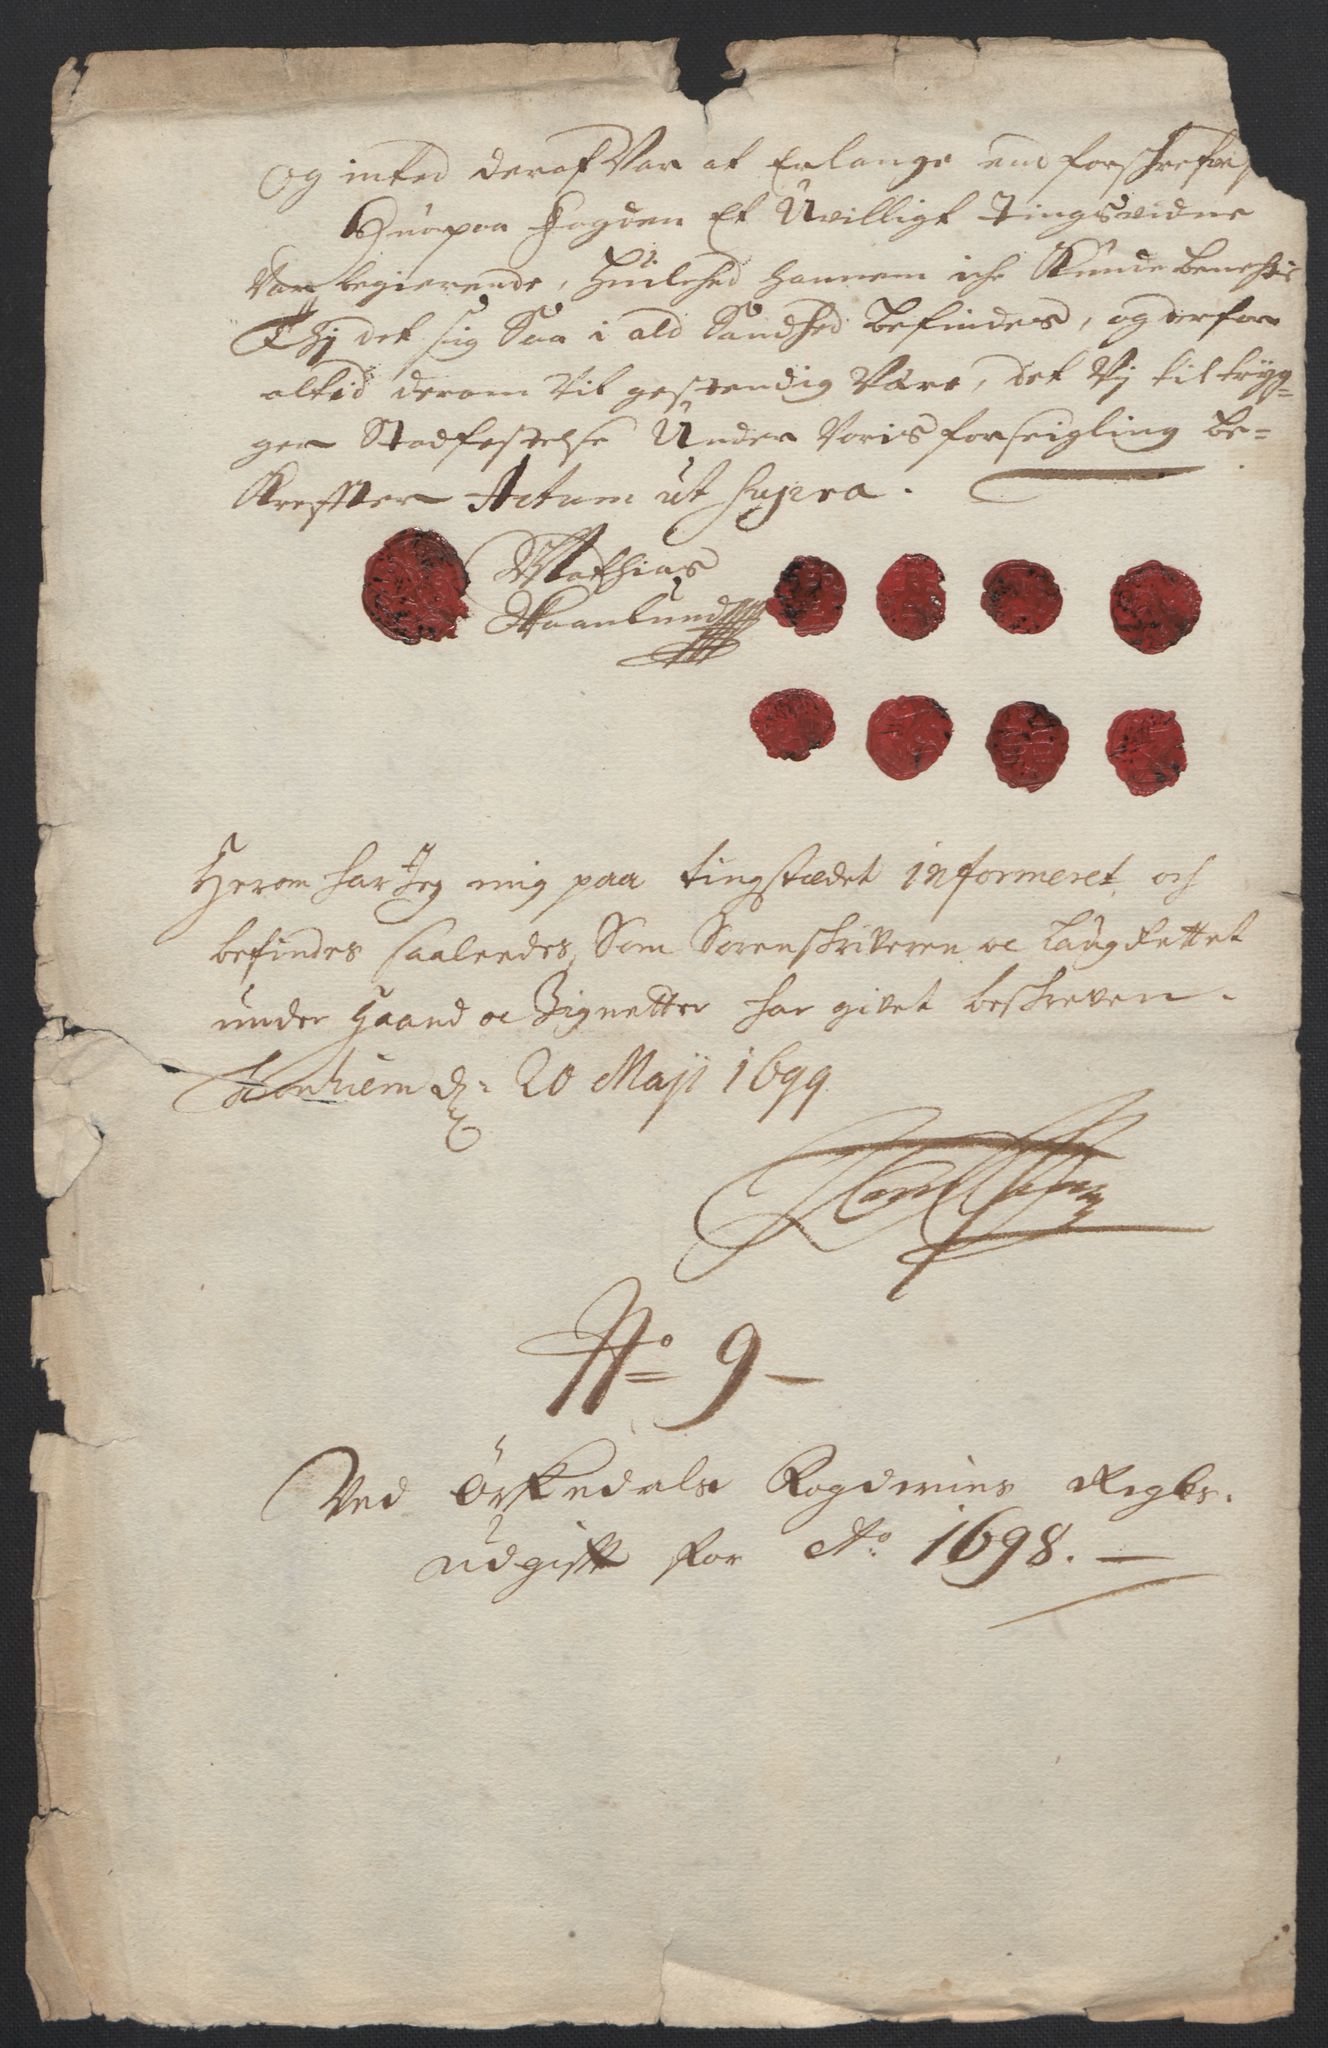 Og inted deraf Var at Erlange end forschrefne
Huorpaa Fogden Et Uvilligt Tingsvidne
Var begierende, Huilched hannem iche Kunde benechtis
Thj det sig Saa i ald Sandhed befindes, og derfor
altid derom Vil gestendig Være, det Vj til tryg=
ger Stadfestelse Under Voris forseigling be=
Kreffter Actum ut supra.
Mathias
Skaanlund
Herom har Jeg mig paa tingstædet informeret och
befindes saaleedes, Som Sorenschriveren oc Laugrettet
under Haand oc Zignetter har givet beskreven.
Tronhiem d: 20 Maji 1699
No 9
Ved Örkedals Fogderies Regls.
udgift for Ao 1698.